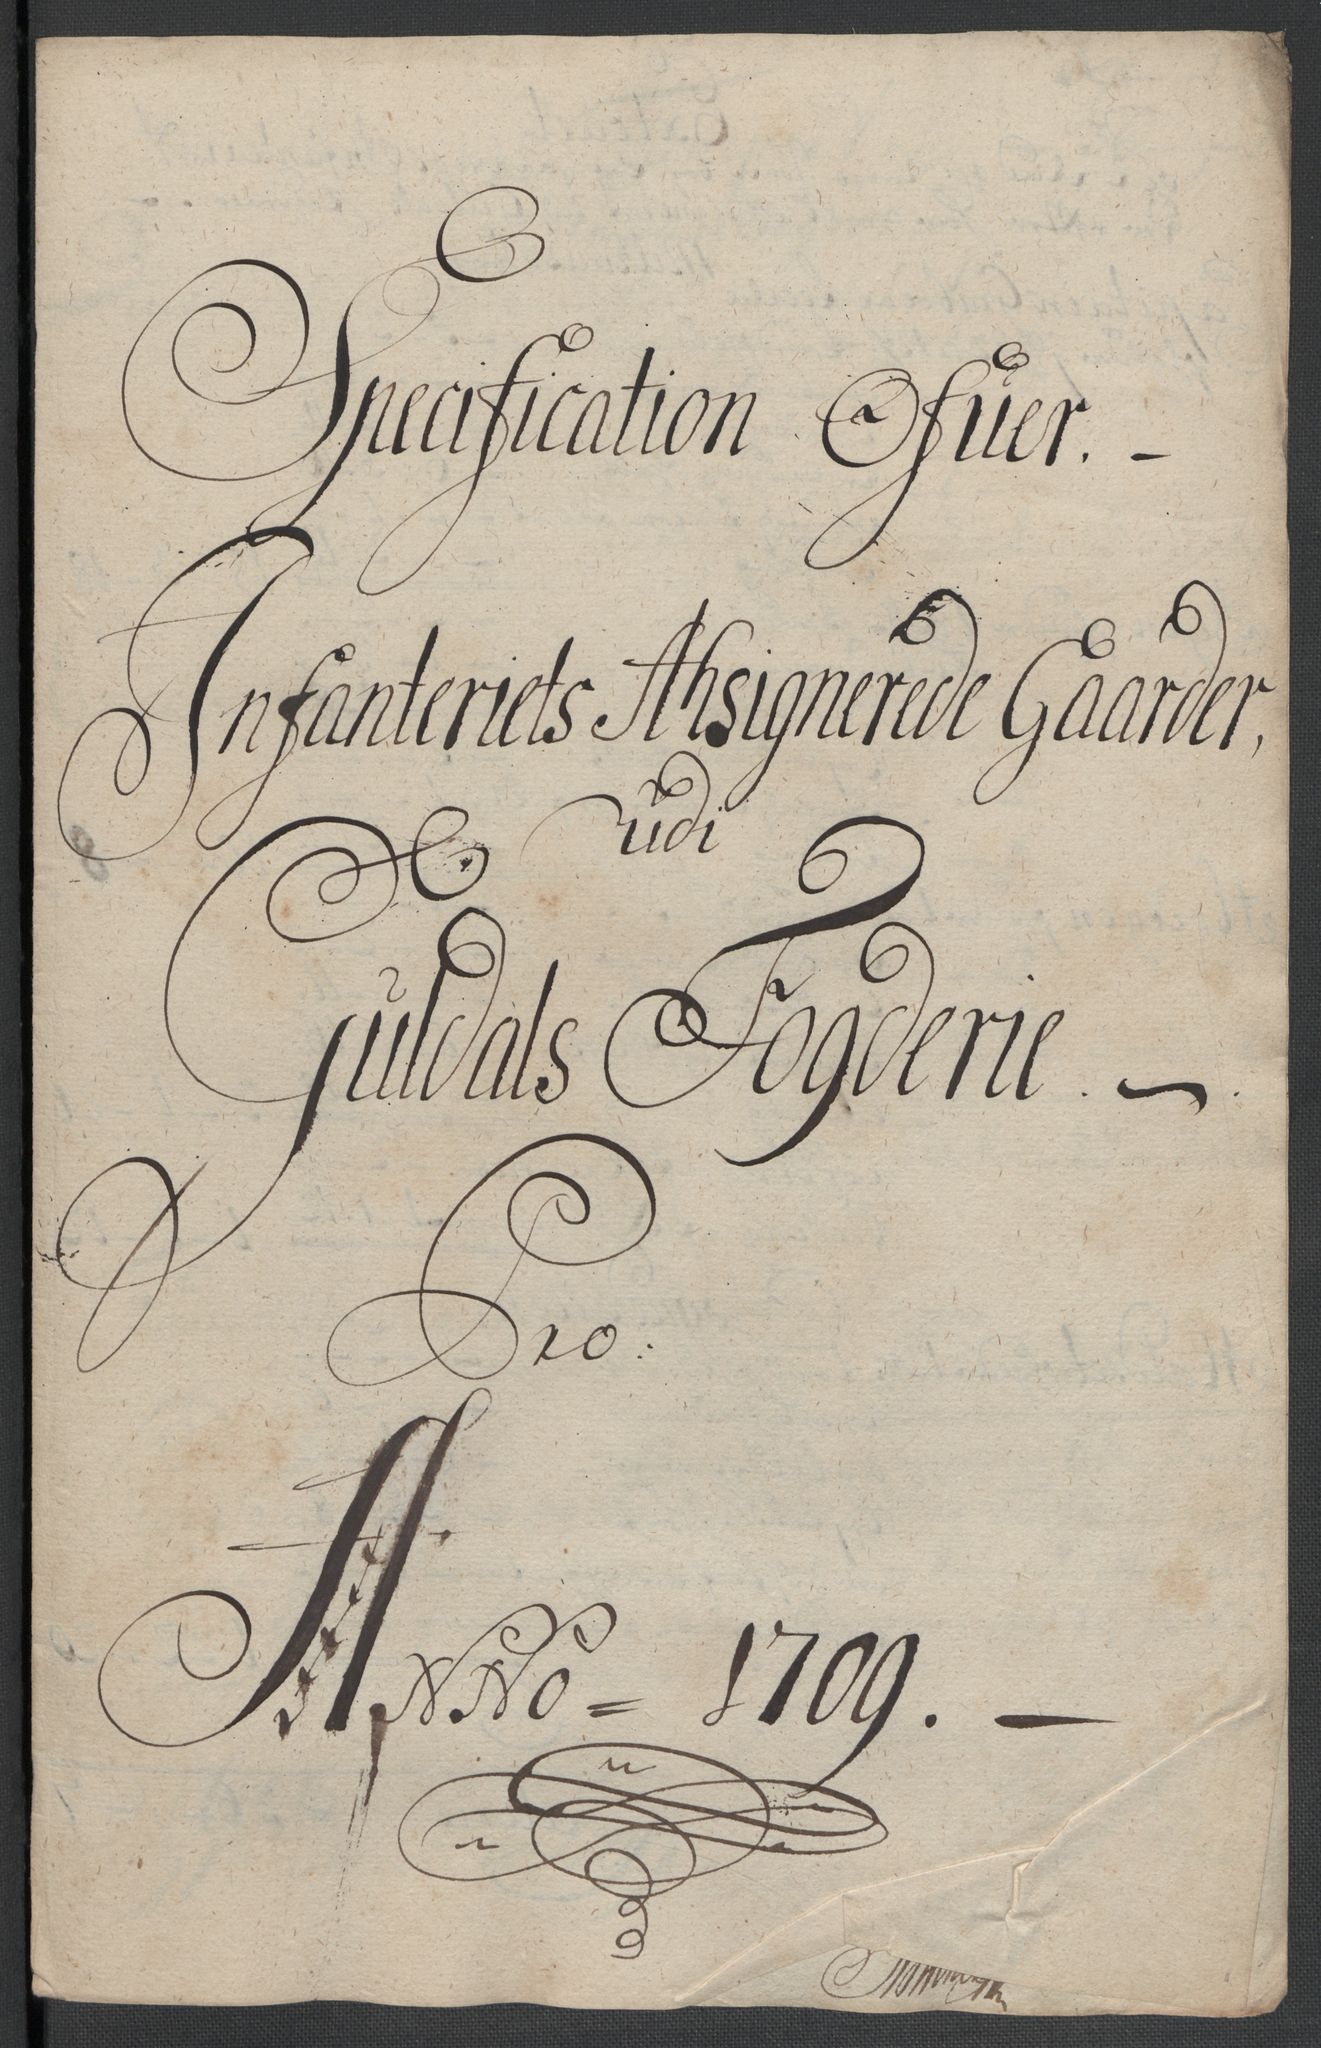 Specification Ofüer. –
Infanteriets Assignerede Gaarder,
üdi
Guldals Fogderie. –
Pro:
Anno = 1709. –